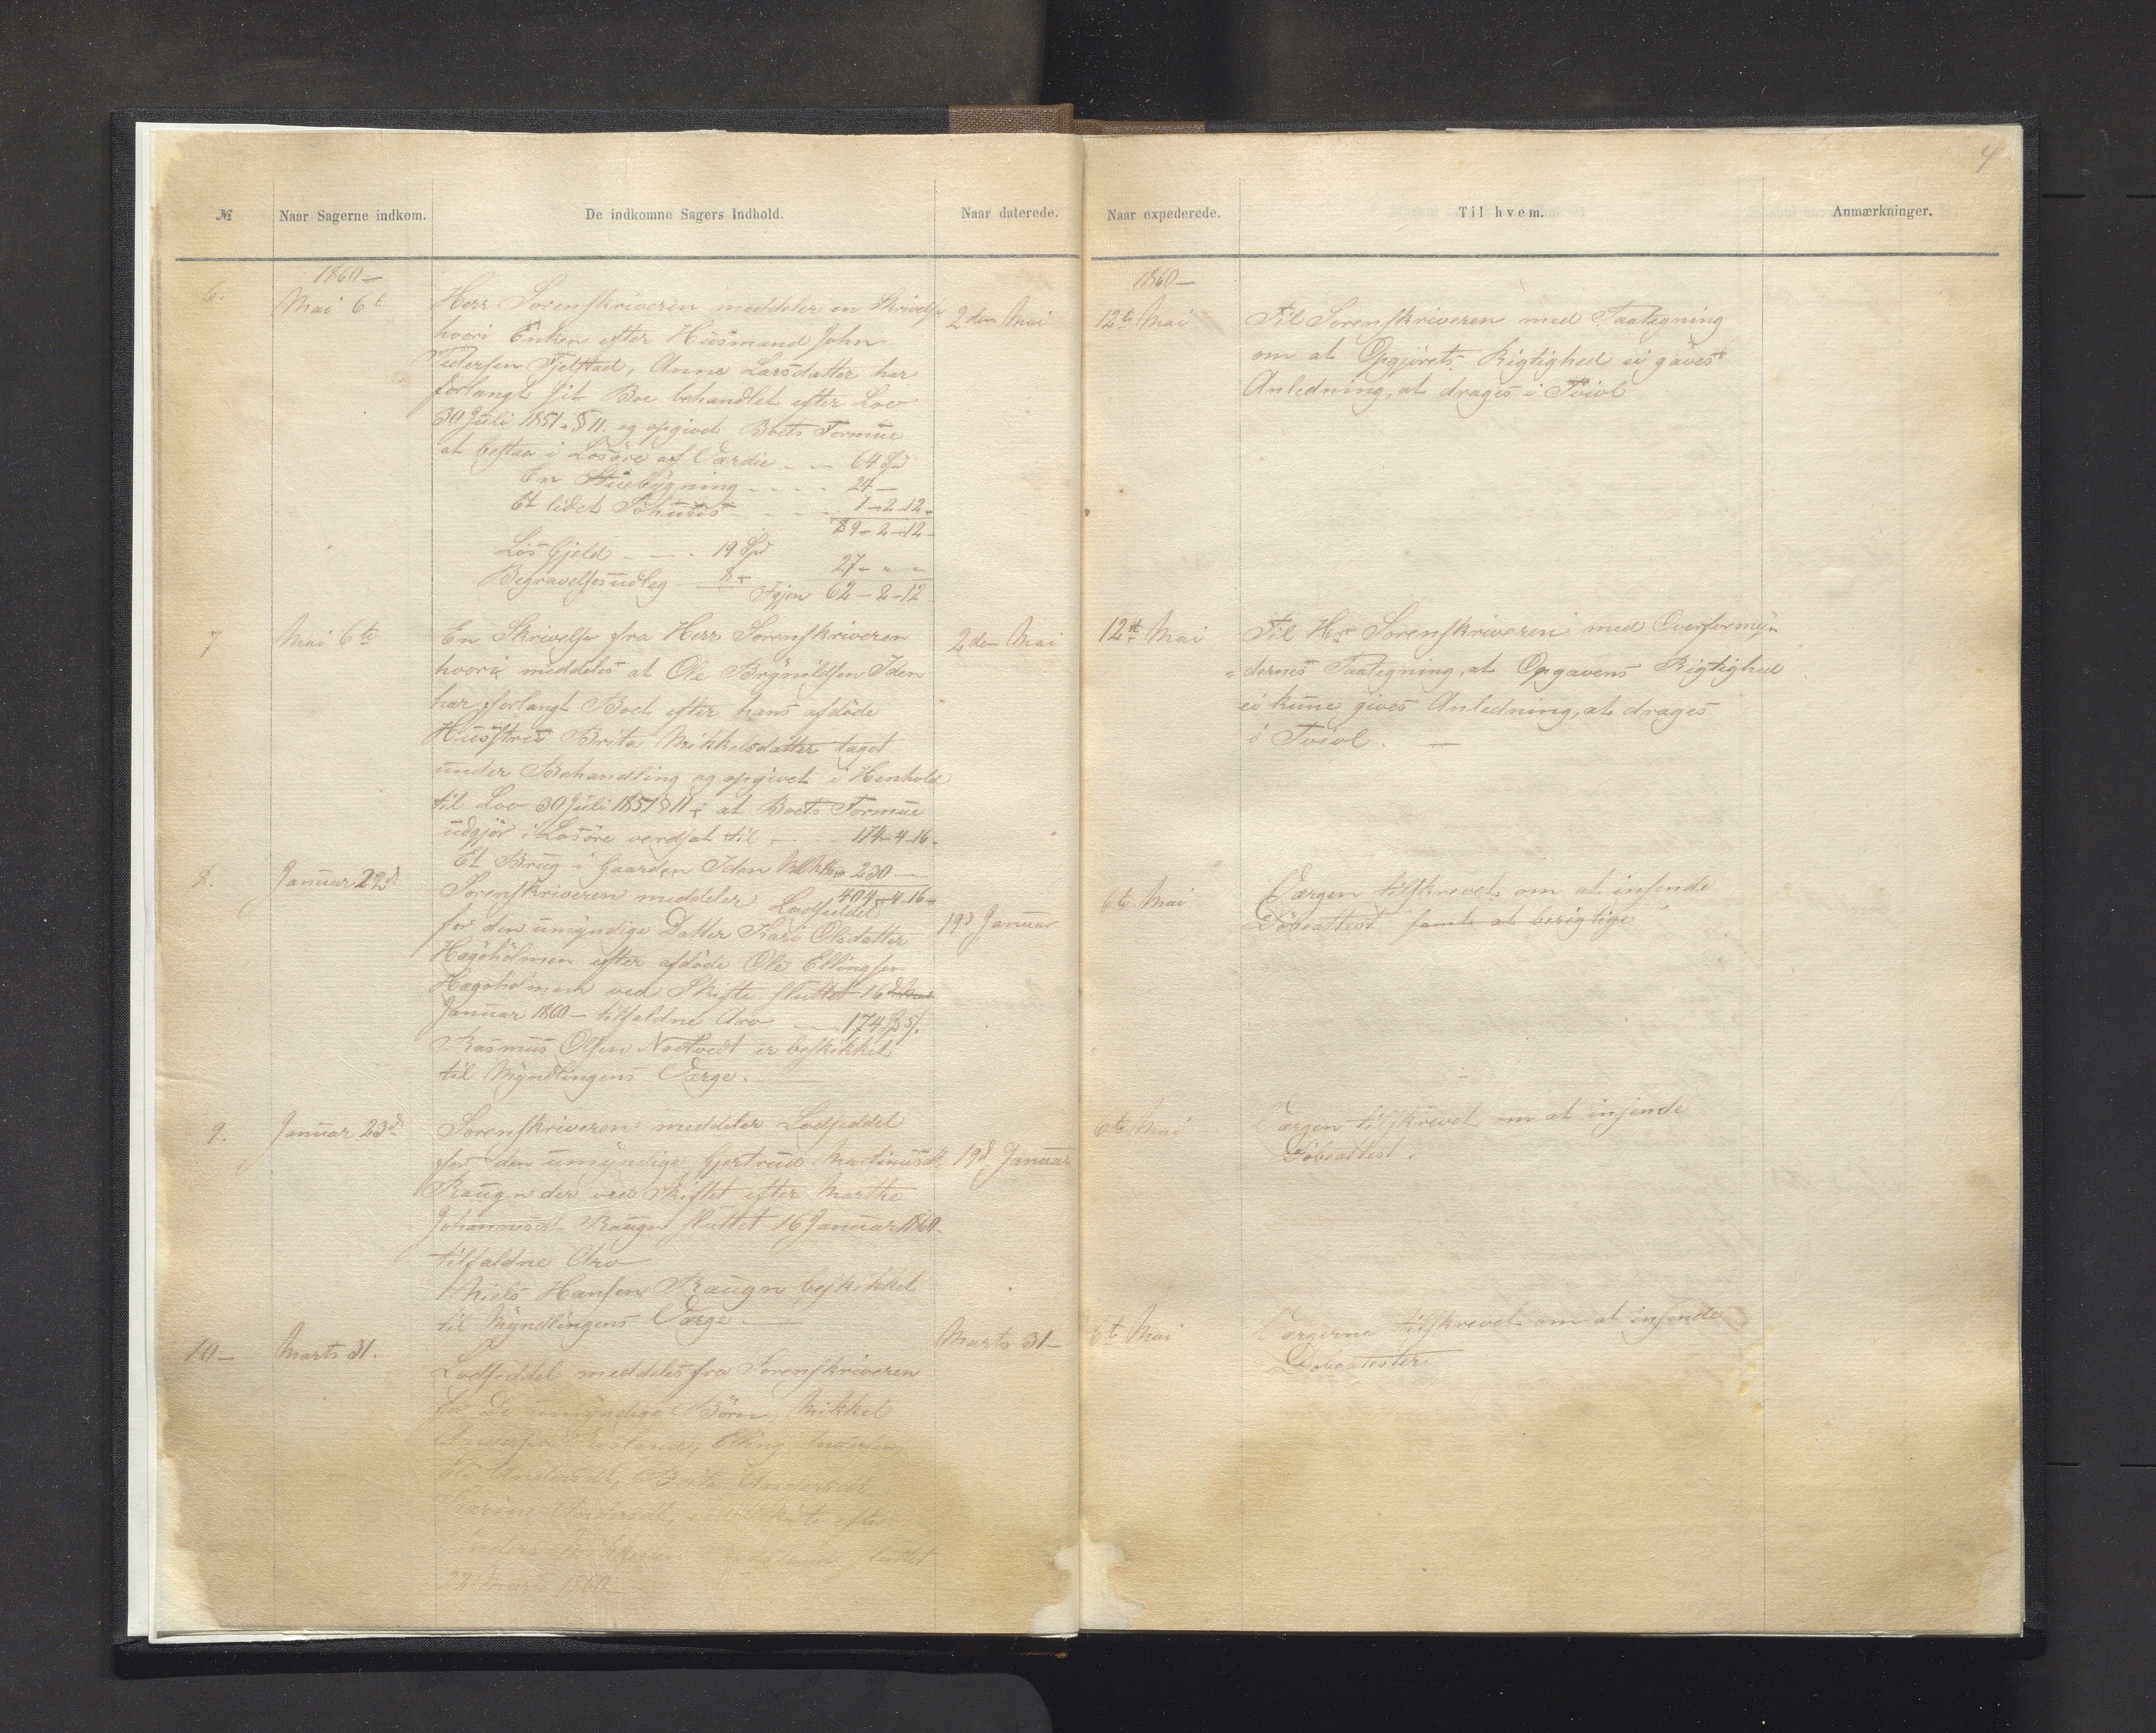 4
№ Naar Sagerne indkom. De indkomne Sagers Indhold. Naar daterede. Naar expederede. Til hvem. Anmærkninger.
1860 —
6. Mai 6t
Herr Sorenskriveren meddeler en Skrivelse
hvori Enken efter Husmand John
Pedersen Fjelstad, Anne Larsdatter har
forlangt sit Boe behandlet efter Lov
30 Juli 1851 § 11. og opgivet Boets Formue
at bestaa i Løsøre af Værdie - - 64 Spd
En Stuebygning - - - - 24 —
Et lidet Søhuus - - - - 1-2-12-
89-2-12-
Løs Gjeld - - - 19 Spd
27 - " -
Begravelsesudleg - 8 -
Igjen 62-2-12
2den Mai
1860 —
12te Mai
Til Sorenskriveren med Paategning
om at Opgjørets Rigtighed ei gaves
Anledning, at drages i Tvivl
7 Mai 6te
En Skrivelse fra Herr Sorenskriveren
hvori meddeles at Ole Brynildsen Iden
har forlangt Boet efter hans afdøde
Husstrue Brita Mikkelsdatter taget
under Behandling og opgivet i Henhold
til Lov 30 Juli 1851 § 11 at Boets Formue
udgjør i Løsøre verdsat til - - - 174-4-16-
Et Brug i Gaarden Iden 230 —
404-4-16-
2den Mai
12te Mai
Til Hr Sorenskriveren med Overformyn
=dernes Paategning, at Opgavens Rigtighed
ei kune gives Anledning, at drages
i Tvivl. —
8. Januar 22d
Sorenskriveren meddeler Lodseddel
for den umyndige Datter Kari Olsdatter
Hægøholmen efter afdøde Ole Ellingsen
Hægøholmen ved Skifte sluttet 16d
Januar 1860 - tilfaldne Arv — 174
Rasmus Olsen er beskikket
til Myndlingens Værge. —
19d Januar
6te Mai
Værgen tilskrevet om at insende
Døbeattest samt at berigtige
9. Januar 23d
Sorenskriveren meddeler Lodseddel
for den umyndige Gjertrud Martinusdt
Raugn der ved Skiftet efter Marthe
Johannesdt Raugn sluttet 16 Januar 1860
tilfaldne Arv
Niels Hansen Raugn beskikket
til Myndlingens Værge —
19d Januar
6te Mai
Værgen tilskrevet om at insende
Døbeattest.
10 — Marts 31.
Lodseddel meddeles fra Sorenskriveren
for De umyndige Børn, Mikkel
Andersen Elling Andersen
Andersdt, Brita Andersdt
Andersdt, efter
Anders sluttet
22 Marts 1860
Marts 31 —
6te Mai
Værgerne tilskrevet om at insende
Døbeatester